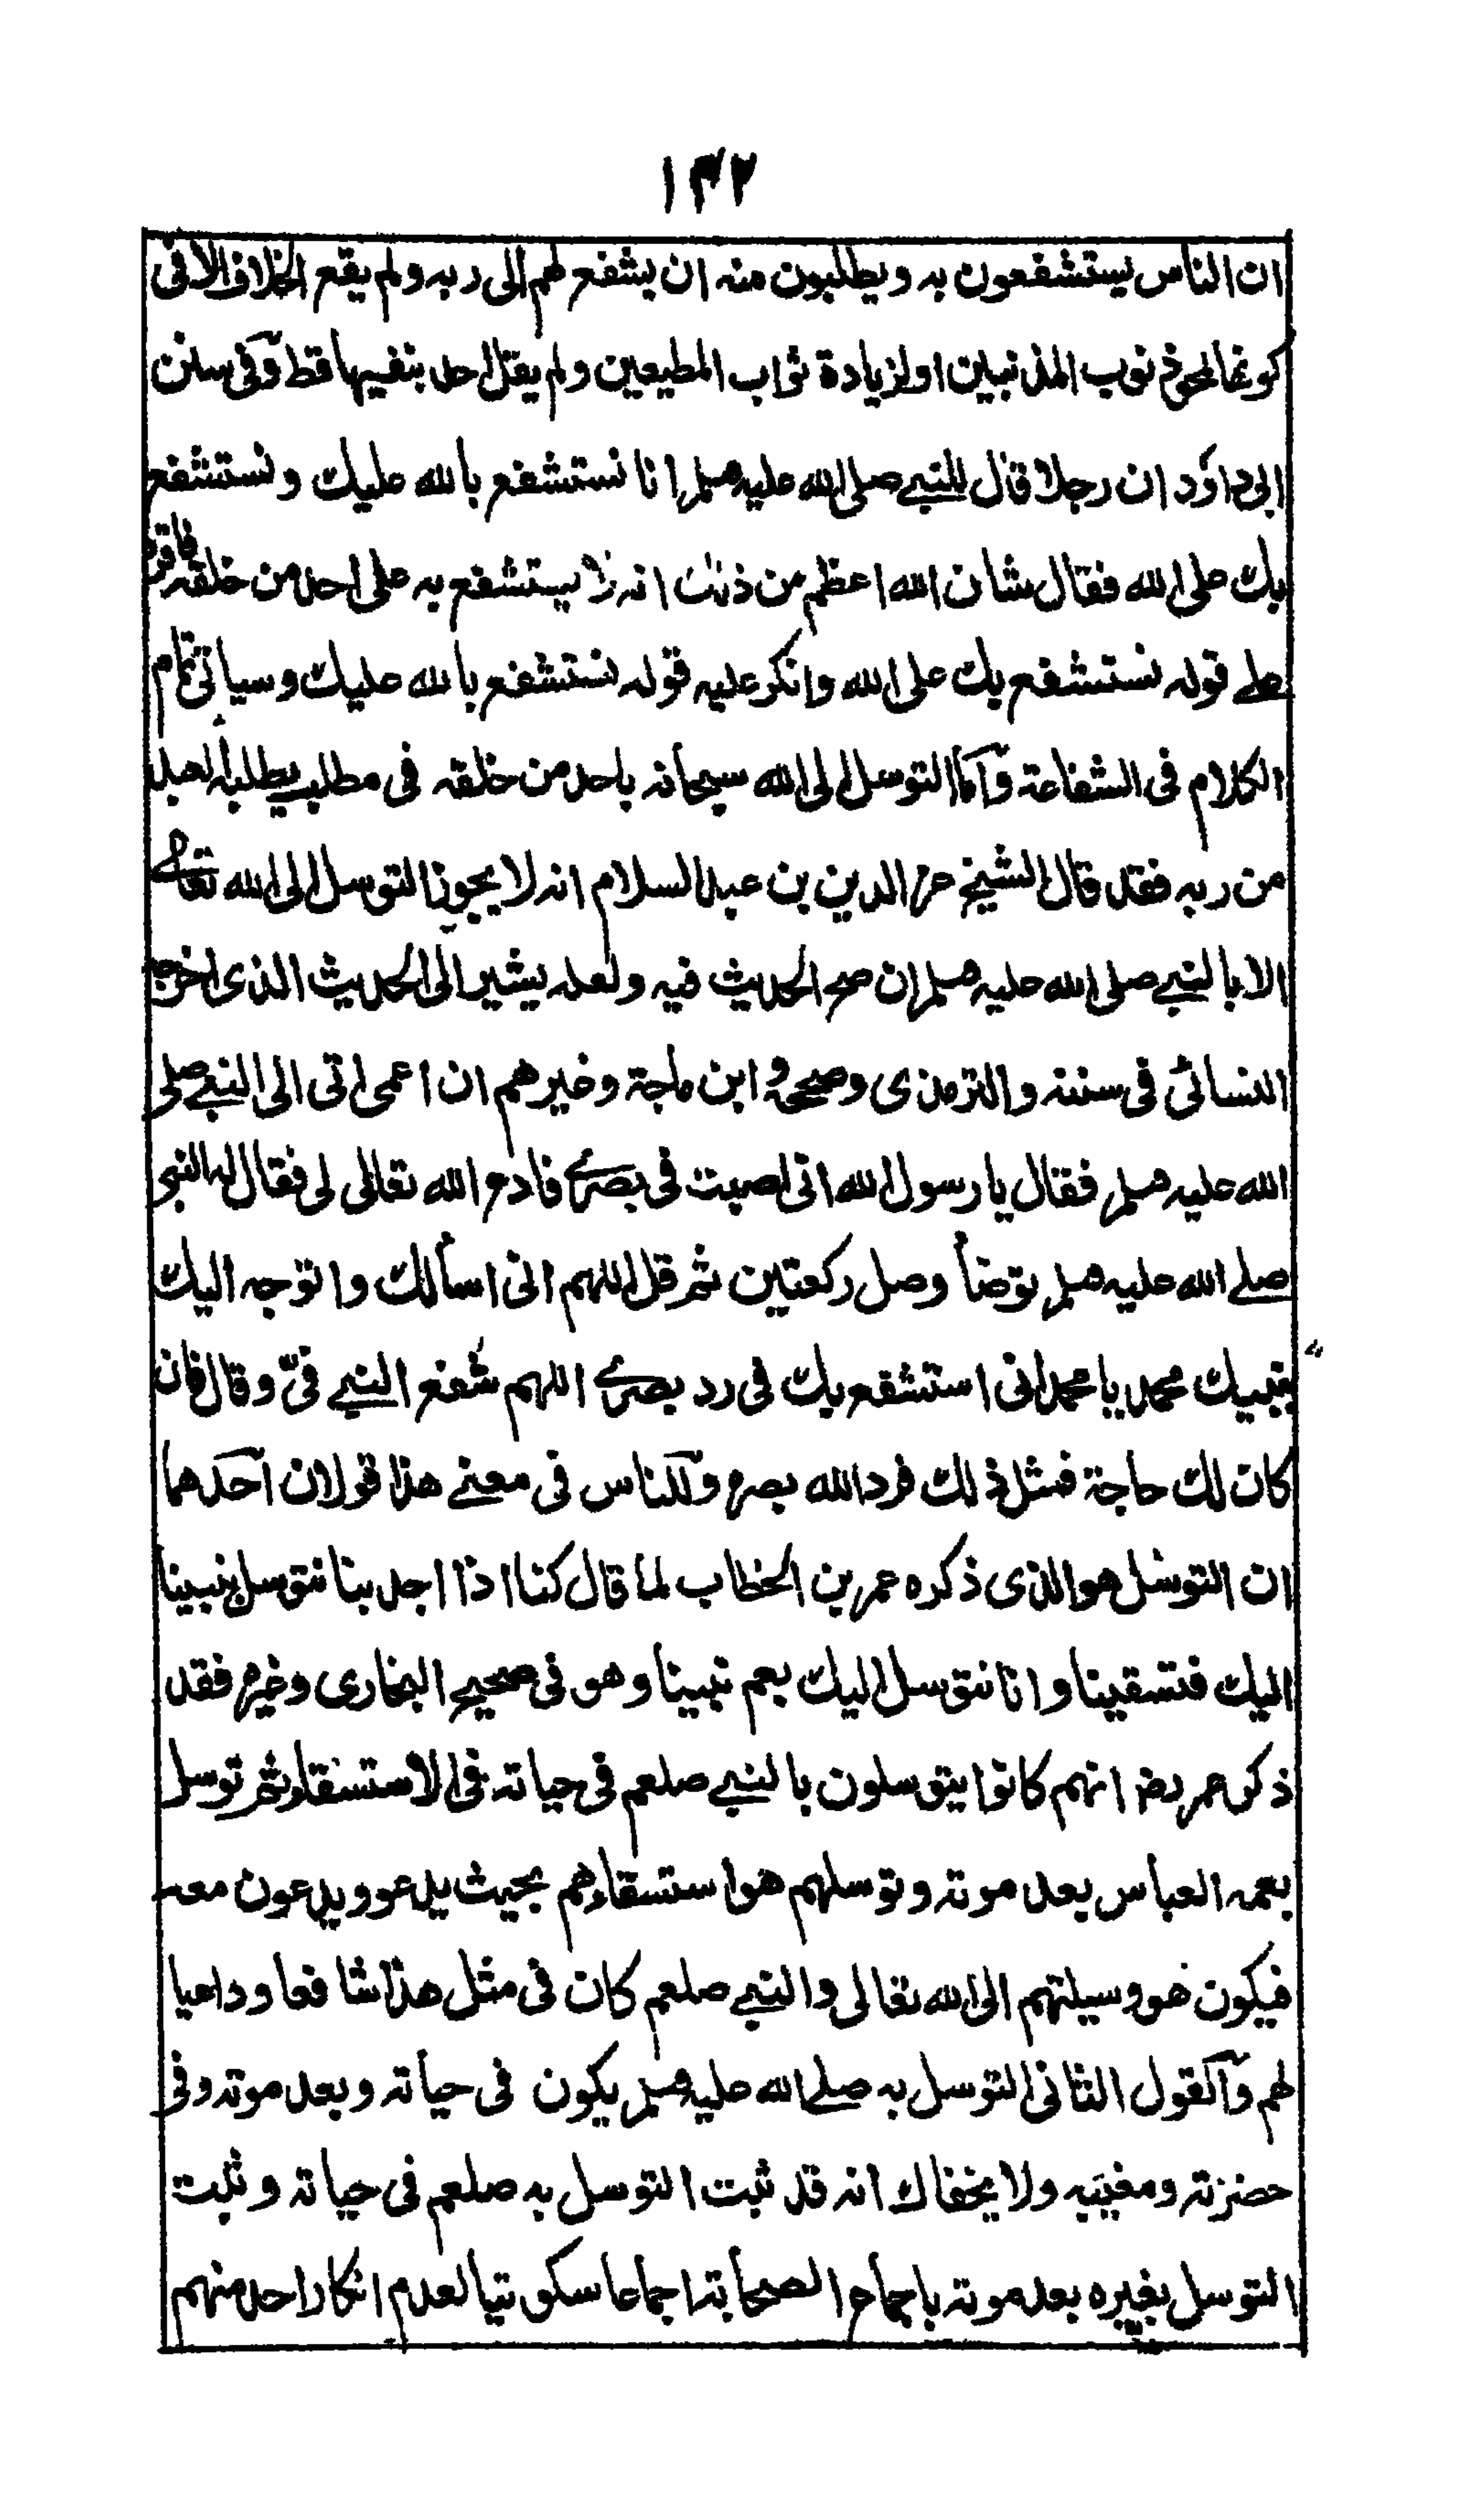 ١٣٢
ان الناس يستشفعون به ويطلبون منه ان يشفع لهم الى ربه ولم يقع الخلاف الا فى
كونها لمحو ذنوب المذنبين او لزيادة ثواب المطيعين ولم يقل احد بنفيها قط وفى سنن
ابى داؤد ان رجلا قال للنبي صلى الله عليه وسلم انا نستشفع بالله عليك ونستشفع
بك على الله فقال شان الله اعظم من ذلك انه لا يستشفع به على احد من خلقه فاقره
على قوله نستشفع بك على الله وانكر عليه قوله نستشفع بالله عليك وسياتى تمام
الكلام فى الشفاعة وآما التوسل الى الله سبحانه باحد من خلقه فى مطلب يطلبه العبد
من ربه فقد قال الشيخ عز الدين بن عبد السلام انه لا يجوز التوسل الى الله تعالى
الا بالنبي صلى الله عليه وسلم ان صح الحديث فيه ولعله يشير الى الحديث الذى اخرجه
النسائى فى سننه والترمذى وصححه وابن ماجة وغيرهم ان اعمى اتى الى النبي صلى
الله عليه وسلم فقال يا رسول الله انى اصبت فى بصرى فادع الله تعالى لى فقال له النبى
صلى الله عليه وسلم توضأ وصل ركعتين ثم قل اللهم انى اسألك واتوجه اليك
بنبيك محمد يا محمد انى استشفع بك فى رد بصرى اللهم شفع النبي فىّ وقال فان
كان لك حاجة فمثل ذلك فرد الله بصره وللناس فى معنى هذا قولان احدهما
ان التوسل هو الذى ذكره عمر بن الخطاب لما قال كنا اذا اجدبنا نتوسل بنبينا
اليك فتسقينا وانا نتوسل اليك بعم نبينا وهو فى صحيح البخارى وغيره فقد
ذكر عمر رضـ انهم كانوا يتوسلون بالنبي صلعم فى حياته فى الاستسقاء ثم توسل
بعمه العباس بعد موته وتوسلهم هو استسقاءهم بحيث يدعو ويدعون معه
فيكون هو وسيلتهم الى الله تعالى والنبي صلعم كان فى مثل هذا شافعا وداعيا
لهم وآلقول الثانى التوسل به صلى الله عليه وسلم يكون فى حياته وبعد موته وفى
حضرته ومغيبه ولا يخفاك انه قد ثبت التوسل به صلعم فى حياته وثبت
التوسل بغيره بعد موته باجماع الصحابة اجماعا سكوتيا لعدم انكار احد منهم